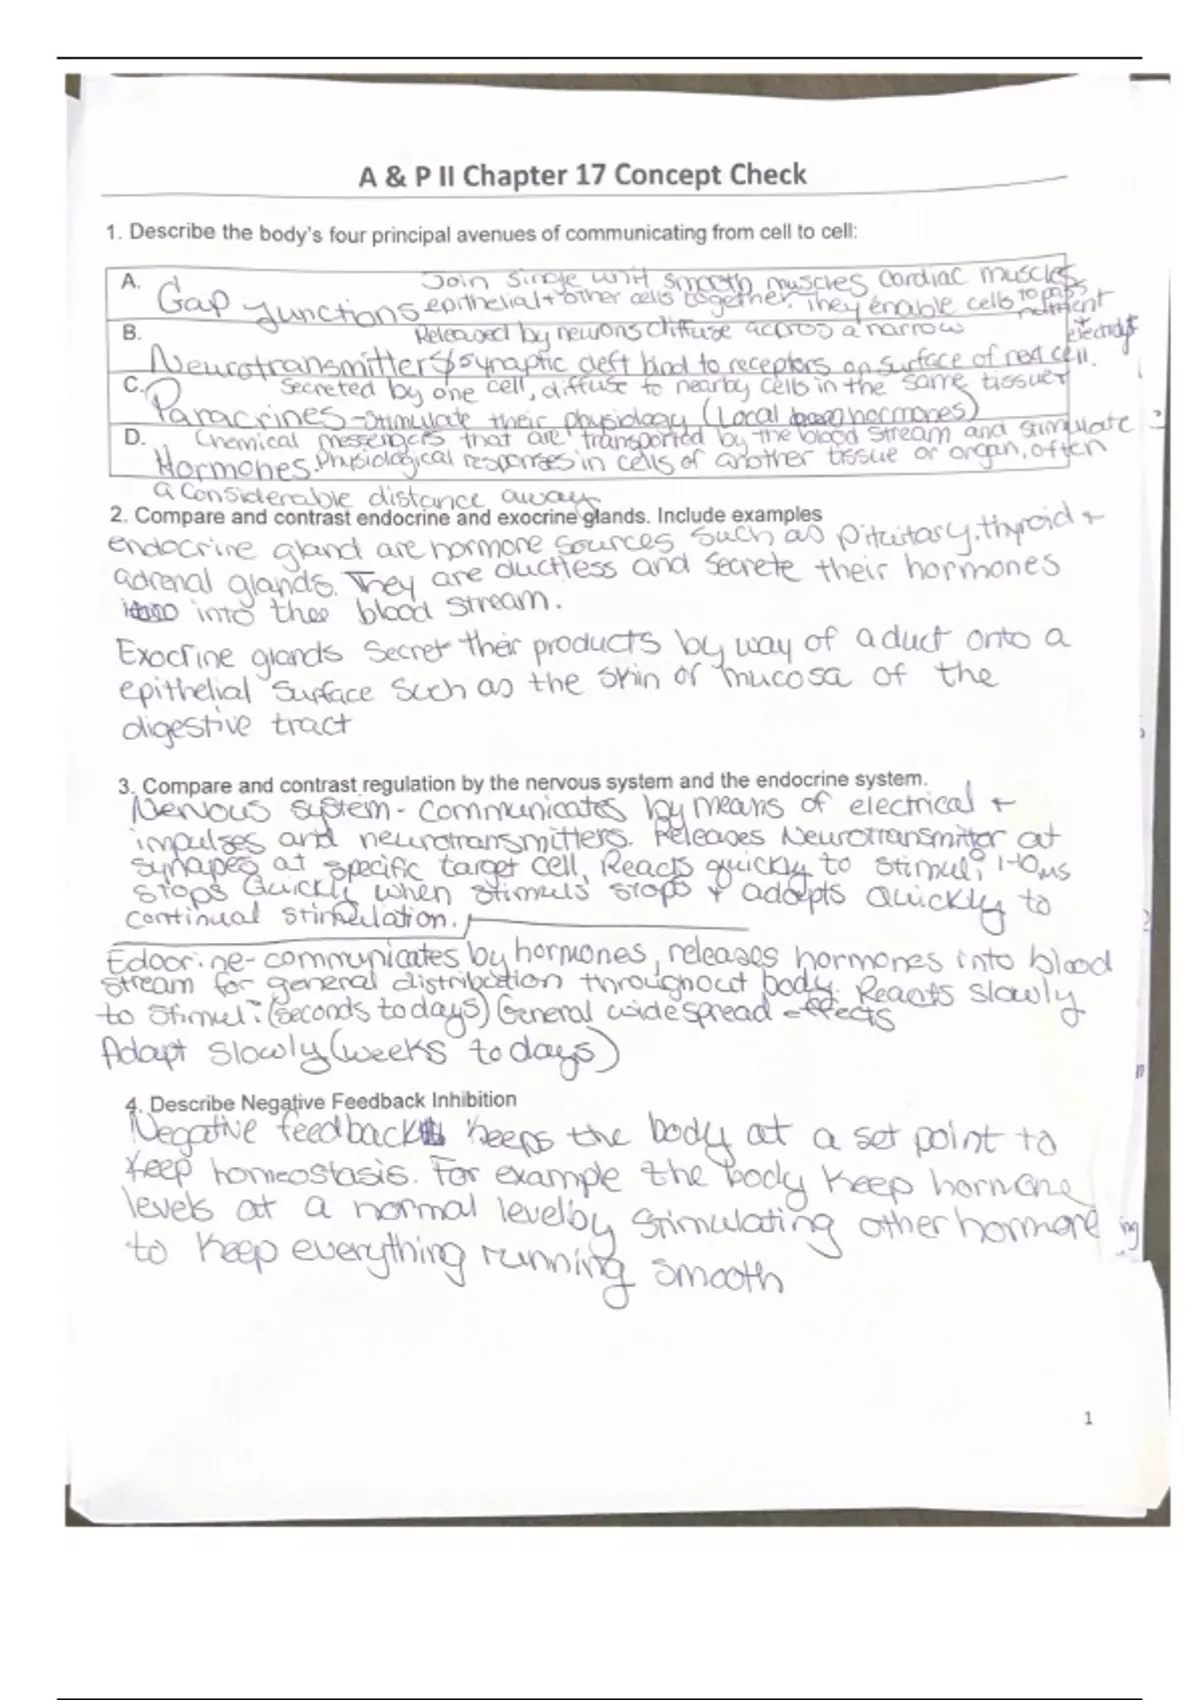 A & P II Chapter 17 Concept Check
1. Describe the body's four principal avenues of communicating from cell to cell:
A. Gap junctions Join single unit smooth muscles cardiac muscles
epithelial + other cells together. They enable cells to pass nutrient + electrolyt
B. Released by neurons diffuse accros a narrow
Neurotransmitters synaptic cleft bind to receptors on surface of next cell.
C. Secreted by one cell, diffuse to nearby cells in the same tissue
Paracrines - stimulate their physiology (Local hormones)
D. Chemical messengers that are transported by the blood stream and stimulate
Hormones. Physiological responses in cells of another tissue or organ, often
a considerable distance away.
2. Compare and contrast endocrine and exocrine glands. Include examples
endocrine gland are hormone sources such as pituitary, thyroid +
adrenal glands. They are ductless and secrete their hormones
into thee blood stream.
Exocrine glands Secret their products by way of a duct onto a
epithelial surface such as the skin or mucosa of the
digestive tract
3. Compare and contrast regulation by the nervous system and the endocrine system.
Nervous system - communicates by means of electrical +
impulses and neurotransmitters. Releases Neurotransmitter at
synapes at specific target cell, Reacts quickly to stimuli 1-10ms
stops Quickly when stimuls stops + adapts Quickly to
continual stimulation.
Edocrine - communicates by hormones, releases hormones into blood
stream for general distribution throughout body. Reacts slowly
to stimuli (seconds to days) General widespread effects
Adapt slowly (weeks to days)
4. Describe Negative Feedback Inhibition
Negative feedback keeps the body at a set point to
keep homeostasis. For example the body keep hormone
levels at a normal level by stimulating other hormone
to keep everything running smooth
ing
1